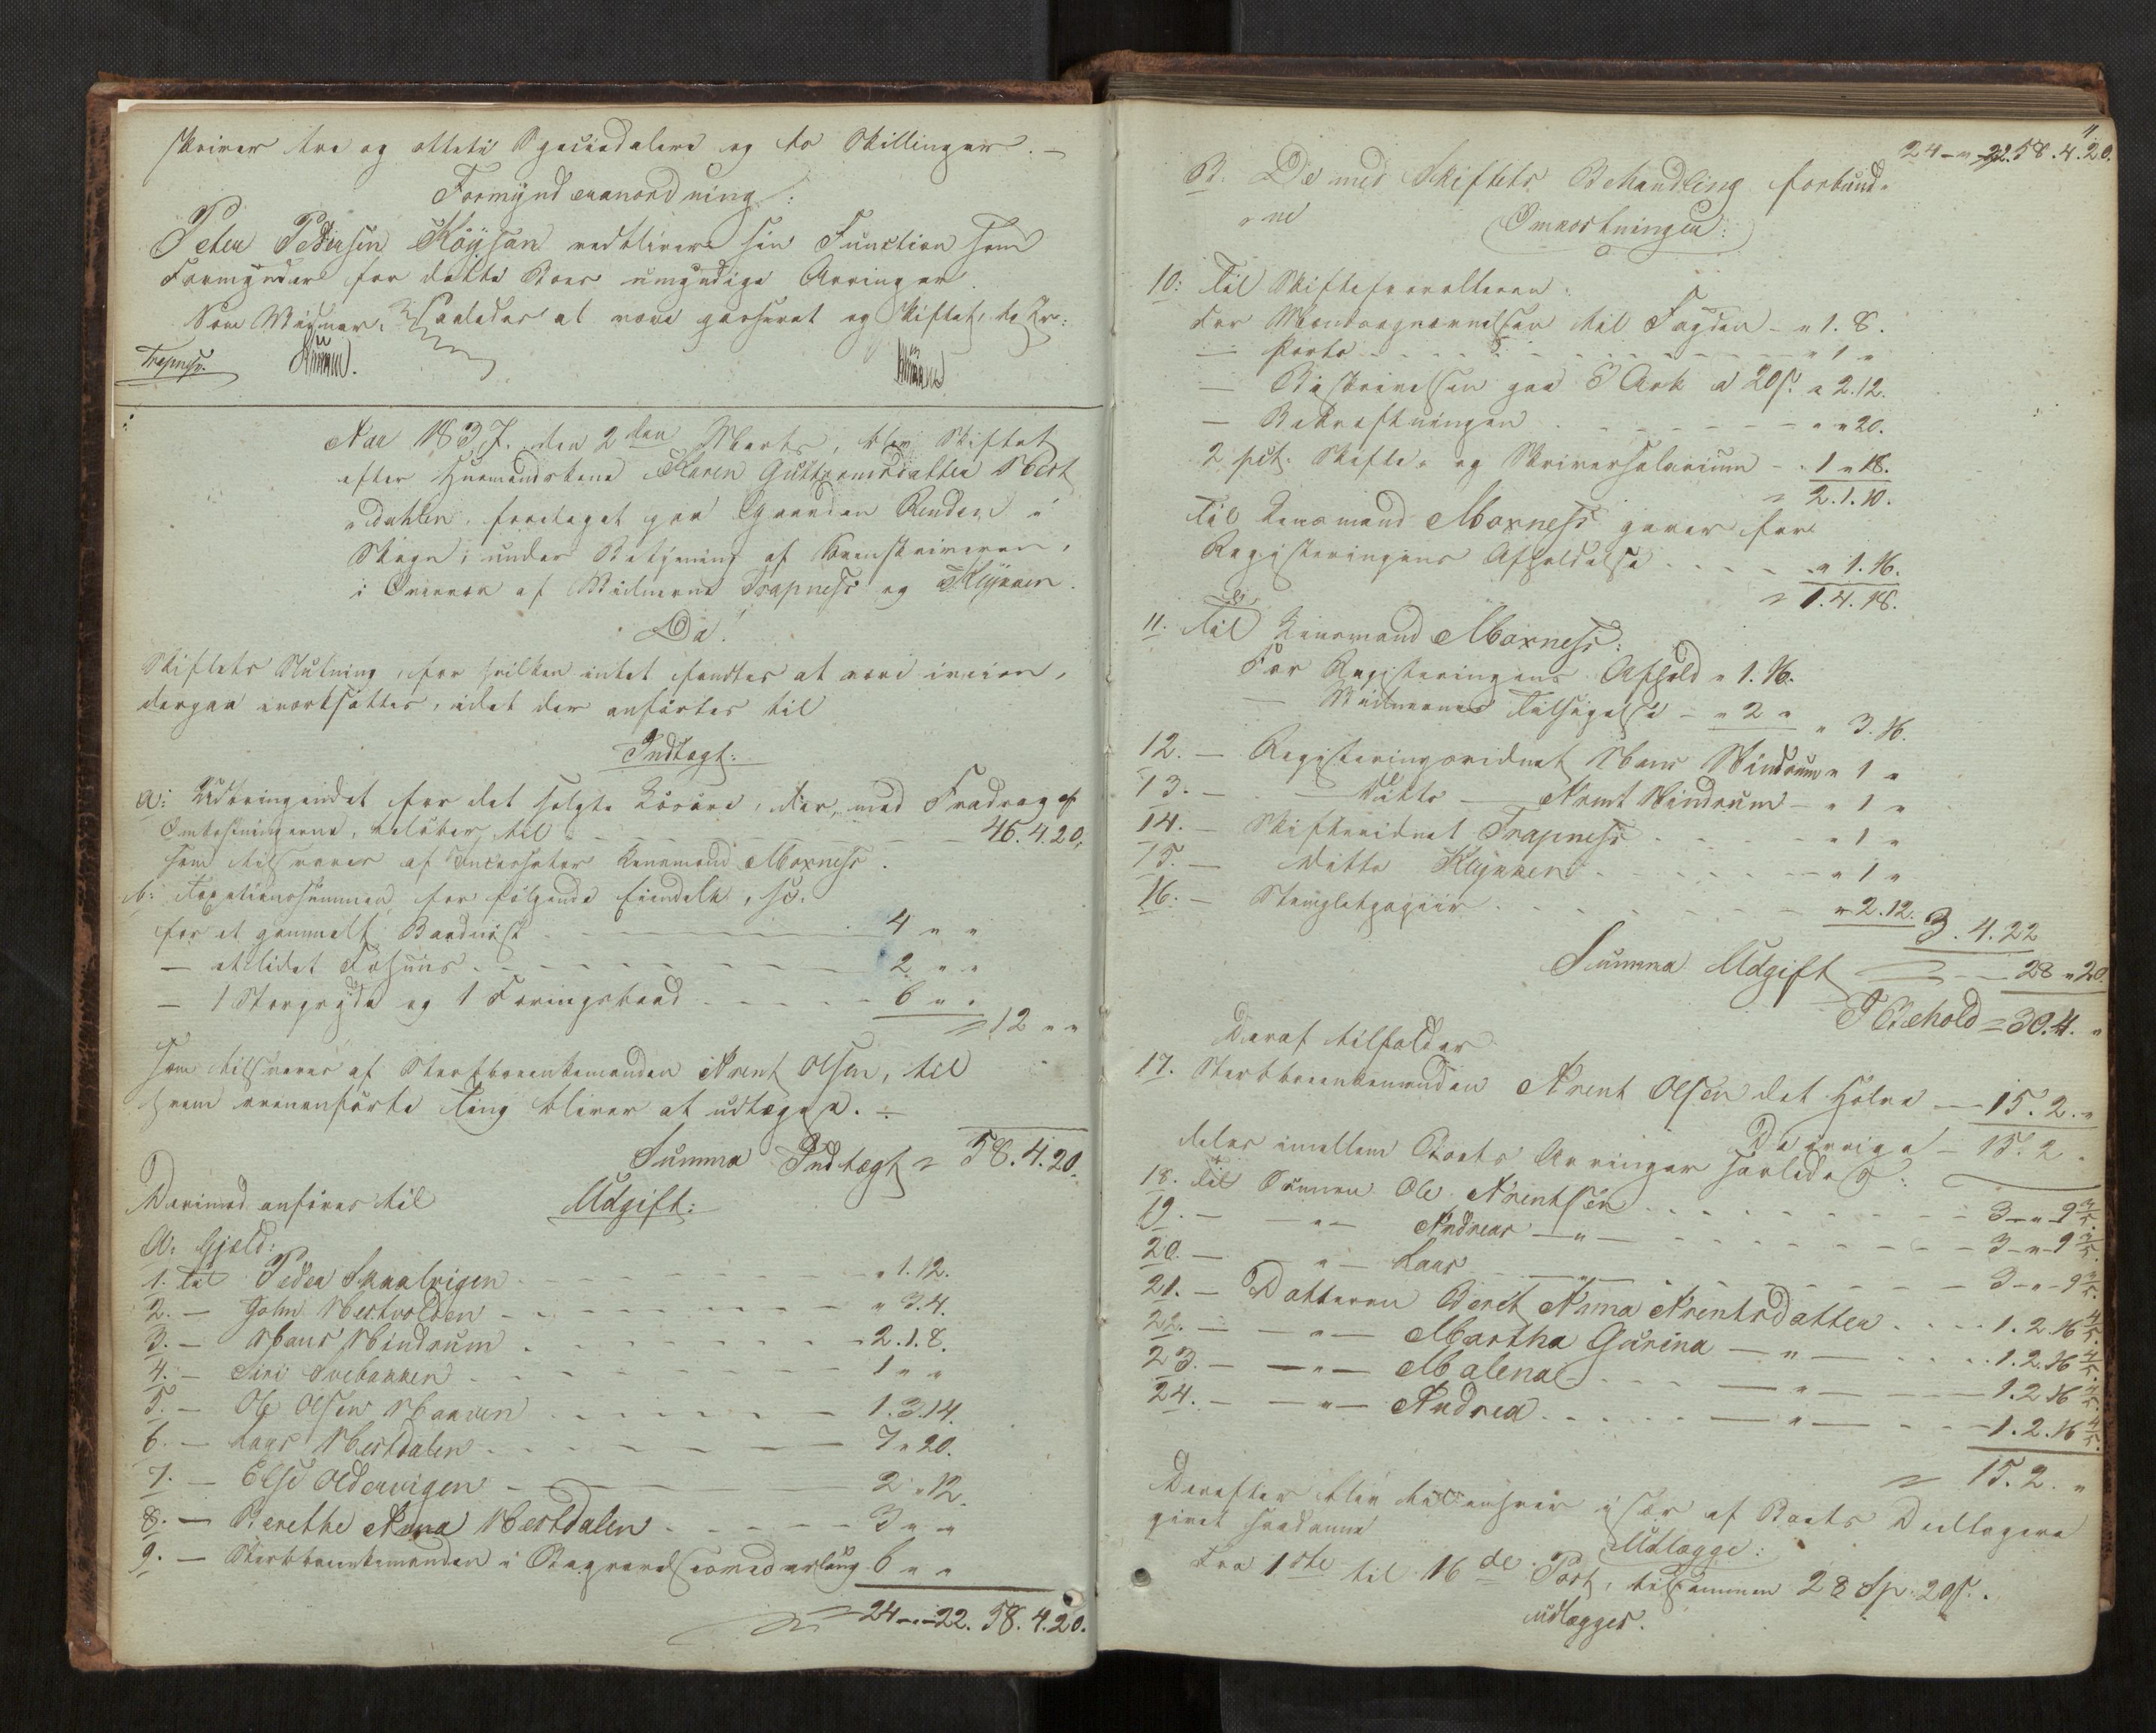 skriver tre og otteti Speciedalere og to Skillinger. —
Formynderanordning:
Peter Pedersen Köysan vedbliver sin Function som
Formynder for dette Boes umyndige Arvinger.
Saaledes at være passeret og skiftet, testerer:
Trapness.
Aar 1837. den 2den Marts, blev Skiftet
efter Huusmandskone Karen Guttormsdatter Vest
„dahlen, foretaget paa Gaarden Renden i
Skage, under Betjening af Sorenskriveren,
i Overvær af Vidnerne Trapness og Klykken.
Da!
Skiftets Slutning, for hvilken intet fandtes at være iveien,
derpaa iværksattes, idet der anførtes til
Indtægt:
a: Udbringendet for det solgte Løsøre, der, med Fradrag af
Omkostningerne, beløber til — 46.4.20,
som tilsvares af Incassator Lensmand Moxness.
b: Taxationssummen for følgende Eiendele, sc.
for et gammelt Baadnøst 4 " "
— etlidet Fæhuus 2 " "
— 1 Storgryde og 1 Færingsbaad 6 " "
= 12 " "
som tilsvares af Sterbboenkemanden Arent Olsen, til
hvem ovenanførte Ting bliver at udlægge. ÷
Summa Indtægt = 58.4.20.
Derimod anføres til Udgift:
A: Gjæld:
1. til Peder Skaalvigen " 1.12.
2. — John Vestvolden " 3.4.
3. — Hans Vindrum 2.1.8.
4. — Siri Svebakken 1 " "
5. — Ole Olsen 1.3.14.
6. — Lars Vestdalen 7 " 20.
7. — Else Oldervigen 2 " 12.
8. — Berethe Anna Vestdalen 3 " "
9. — Sterbboenkemanden i Begravelsesvederlag 6 " "
= 24 — " — 22. 58.4.20.
11
24 — " — 22. 58.4.20.
B. De med Skiftets Behandling forbund„
„ne
Omkostninger:
10: Til Skifteforvalteren:
For Mændsopnævnelsen til Fogden — " 1. 8.
— Porto " 1 "
— Beskrivelsen paa 3 Ark a 20s. " 2.12.
— Bekræftningen " " 20.
2 pct. Skifte- og Skriversalarium — 1 " 18.
= 2.1.10.
Til Lensmand Moxness haves for
Registeringens Afholdelse " 1.16.
= 1.4.18.
11. Til Lensmand Moxness:
For Registeringens Afhold " 1.16.
— Vidnernes Tilsigelse — " 2 " " 3.16.
12. — Registeringsvidnet Hans Vindrum " 1 "
13. — Ditto — Arnt Vindrum — " 1 "
14. — Skiftevidnet Trapness " 1 "
15. — Ditto Klykken " 1 "
16. — Stempletpapiir " 2.12. 3.4.22
Summa Udgift — 28 " 20.
I Behold = 30.4. "
Deraf tilfalder
17. Sterbboenkemanden Arent Olsen det Halve — 15.2. "
De øvrige — 15.2 "
deles imellem Boets Arvinger saaledes:
18. Til Sønnen Ole Arentsen 3 — " — 9 3/5.
19. — — " — Andreas — " — 3 — " — 9 3/5.
20. — " — Lars — " — 3 — " — 9 3/5.
21. — Datteren Berit Anna Arentsdatter 1.2.16 4/5.
22. — — " — Martha Gurina — " — 1.2.16 4/5.
23. — — " — Malena — " — 1.2.16 4/5.
24. — — " — Andrea — " — 1.2.16 4/5.
= 15.2. "
Derefter blev til enhver især af Boets Deeltagere
givet saadanne
Udlægge:
Fra 1ste til 16de Post, tilsammen 28 Sp. 20s.
udlægges.